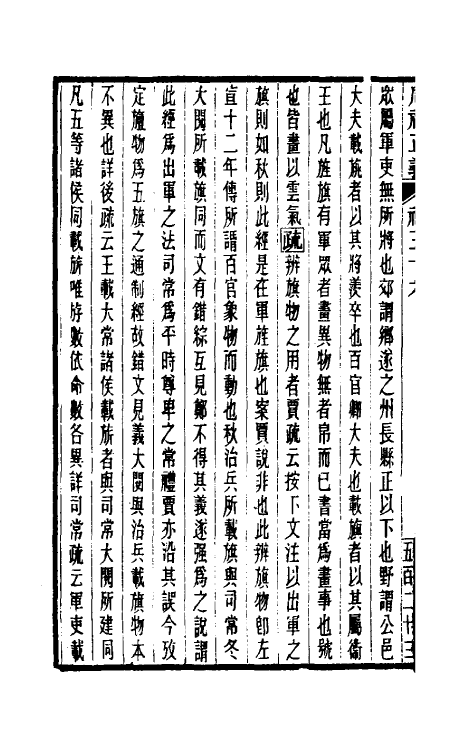 周禮正義
衆屬軍吏無所將也郊謂鄉遂之州長縣正以下也野謂公邑
大夫載旐者以其將羨卒也百官卿大夫也載旟者以其屬衞
王也凡旌旗有軍衆者畫異物無者帛而已書當爲畫事也號
也皆畫以雲氣疏辨旗物之用者賈疏云按下文注以出軍之
旗則如秋則此經是在軍旌旗也案賈說非也此辨旗物卽左
宣十二年傳所謂百官象物而動也秋治兵所載旗與司常冬
大閱所載旗同而文有錯綜互見鄭不得其義遂强爲之說謂
此經爲出軍之法司常爲平時尊卑之常禮賈亦沿其誤今攷
定旗物爲五旗之通制經故錯文見義大閱與治兵載旗物本
不異也詳後疏云王載大常諸侯載旂者與司常大閱所建同
凡五等諸侯同載旂唯斿數依命數各異詳司常疏云軍吏載